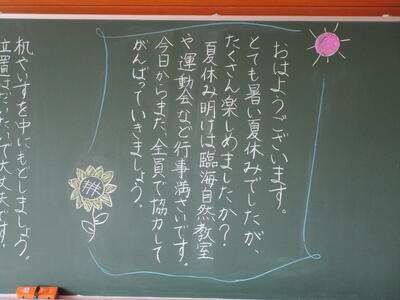 おはようございます。
とても暑い夏休みでしたが、
たくさん楽しめましたか？
夏休み明けは臨海自然教室
や運動会など行事満さいです。
今日からまた、全員で協力して
がんばっていきましょう。
机やいすを中にもどしましょう。
位置はだいたいで大丈夫です。